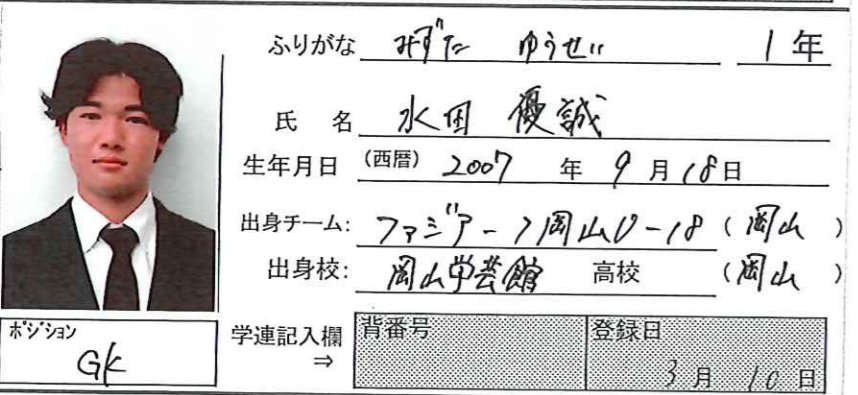 ふりがな みずた ゆうせい 1年
氏 名 水田 優誠
生年月日 (西暦) 2007 年 9 月 18日
出身チーム: ファジアーノ岡山U-18 (岡山)
出身校: 岡山学芸館 高校 (岡山)
ポジション
GK
学連記入欄
⇒
背番号
登録日
3 月 10 日